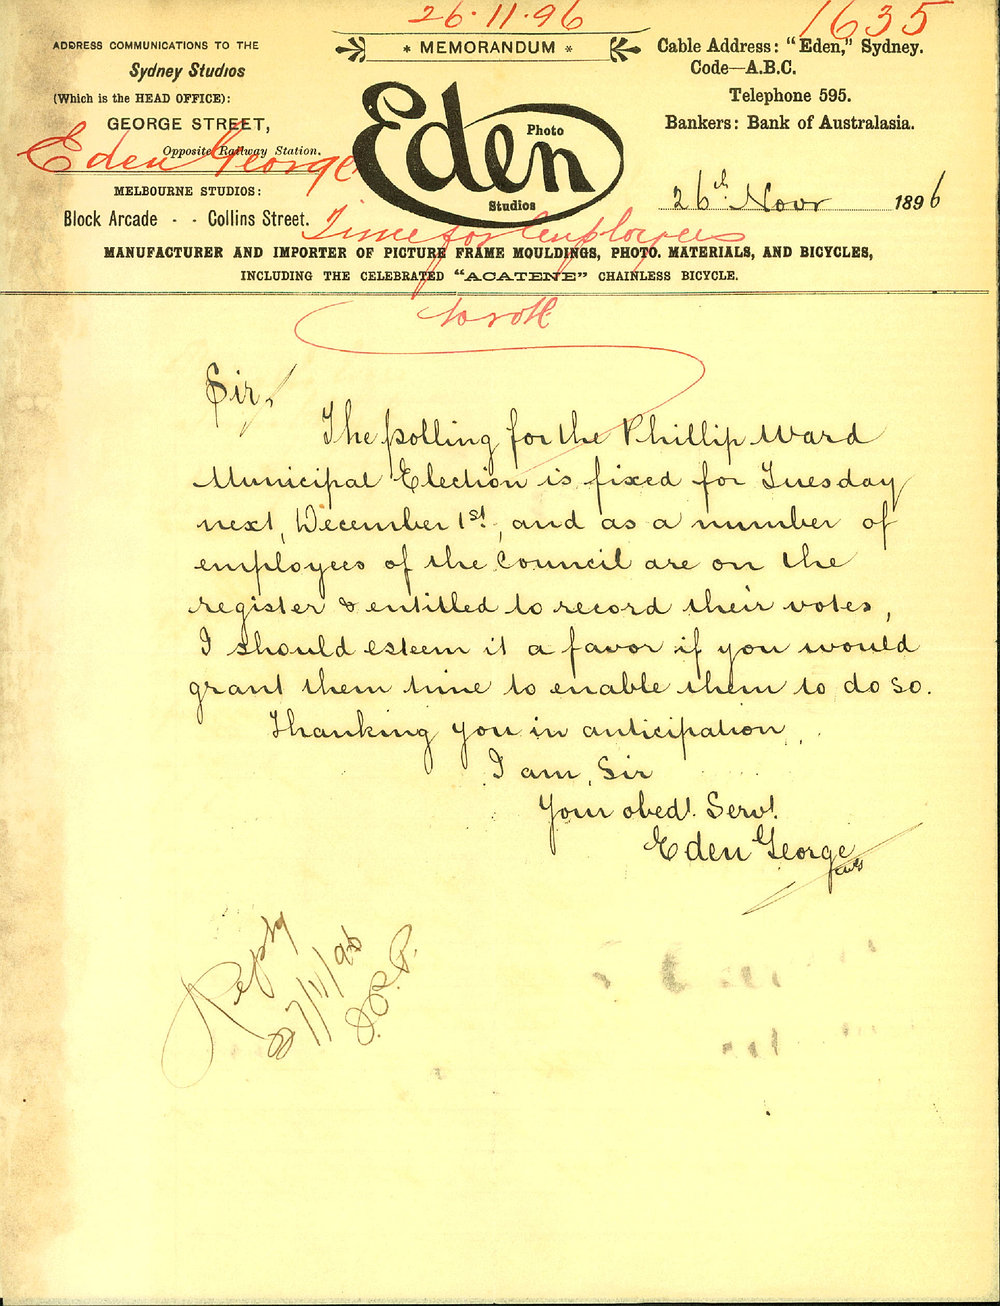 26.11.96
1635
ADDRESS COMMUNICATIONS TO THE
Sydney Studios
(Which is the HEAD OFFICE):
GEORGE STREET,
Opposite Railway Station.
MELBOURNE STUDIOS:
Block Arcade - - Collins Street.
* MEMORANDUM *
Eden
Photo
Studios
Cable Address: "Eden," Sydney.
Code—A.B.C.
Telephone 595.
Bankers: Bank of Australasia.
26th Novr 1896
Eden George
Time for employees
to vote
MANUFACTURER AND IMPORTER OF PICTURE FRAME MOULDINGS, PHOTO. MATERIALS, AND BICYCLES,
INCLUDING THE CELEBRATED "ACATENE" CHAINLESS BICYCLE.
Sir,
The polling for the Phillip Ward
Municipal Election is fixed for Tuesday
next, December 1st, and as a number of
employees of the Council are on the
register & entitled to record their votes,
I should esteem it a favor if you would
grant them time to enable them to do so.
Thanking you in anticipation,
I am, Sir
Your obedt. Servt.
Eden George
Reply
27/11/96